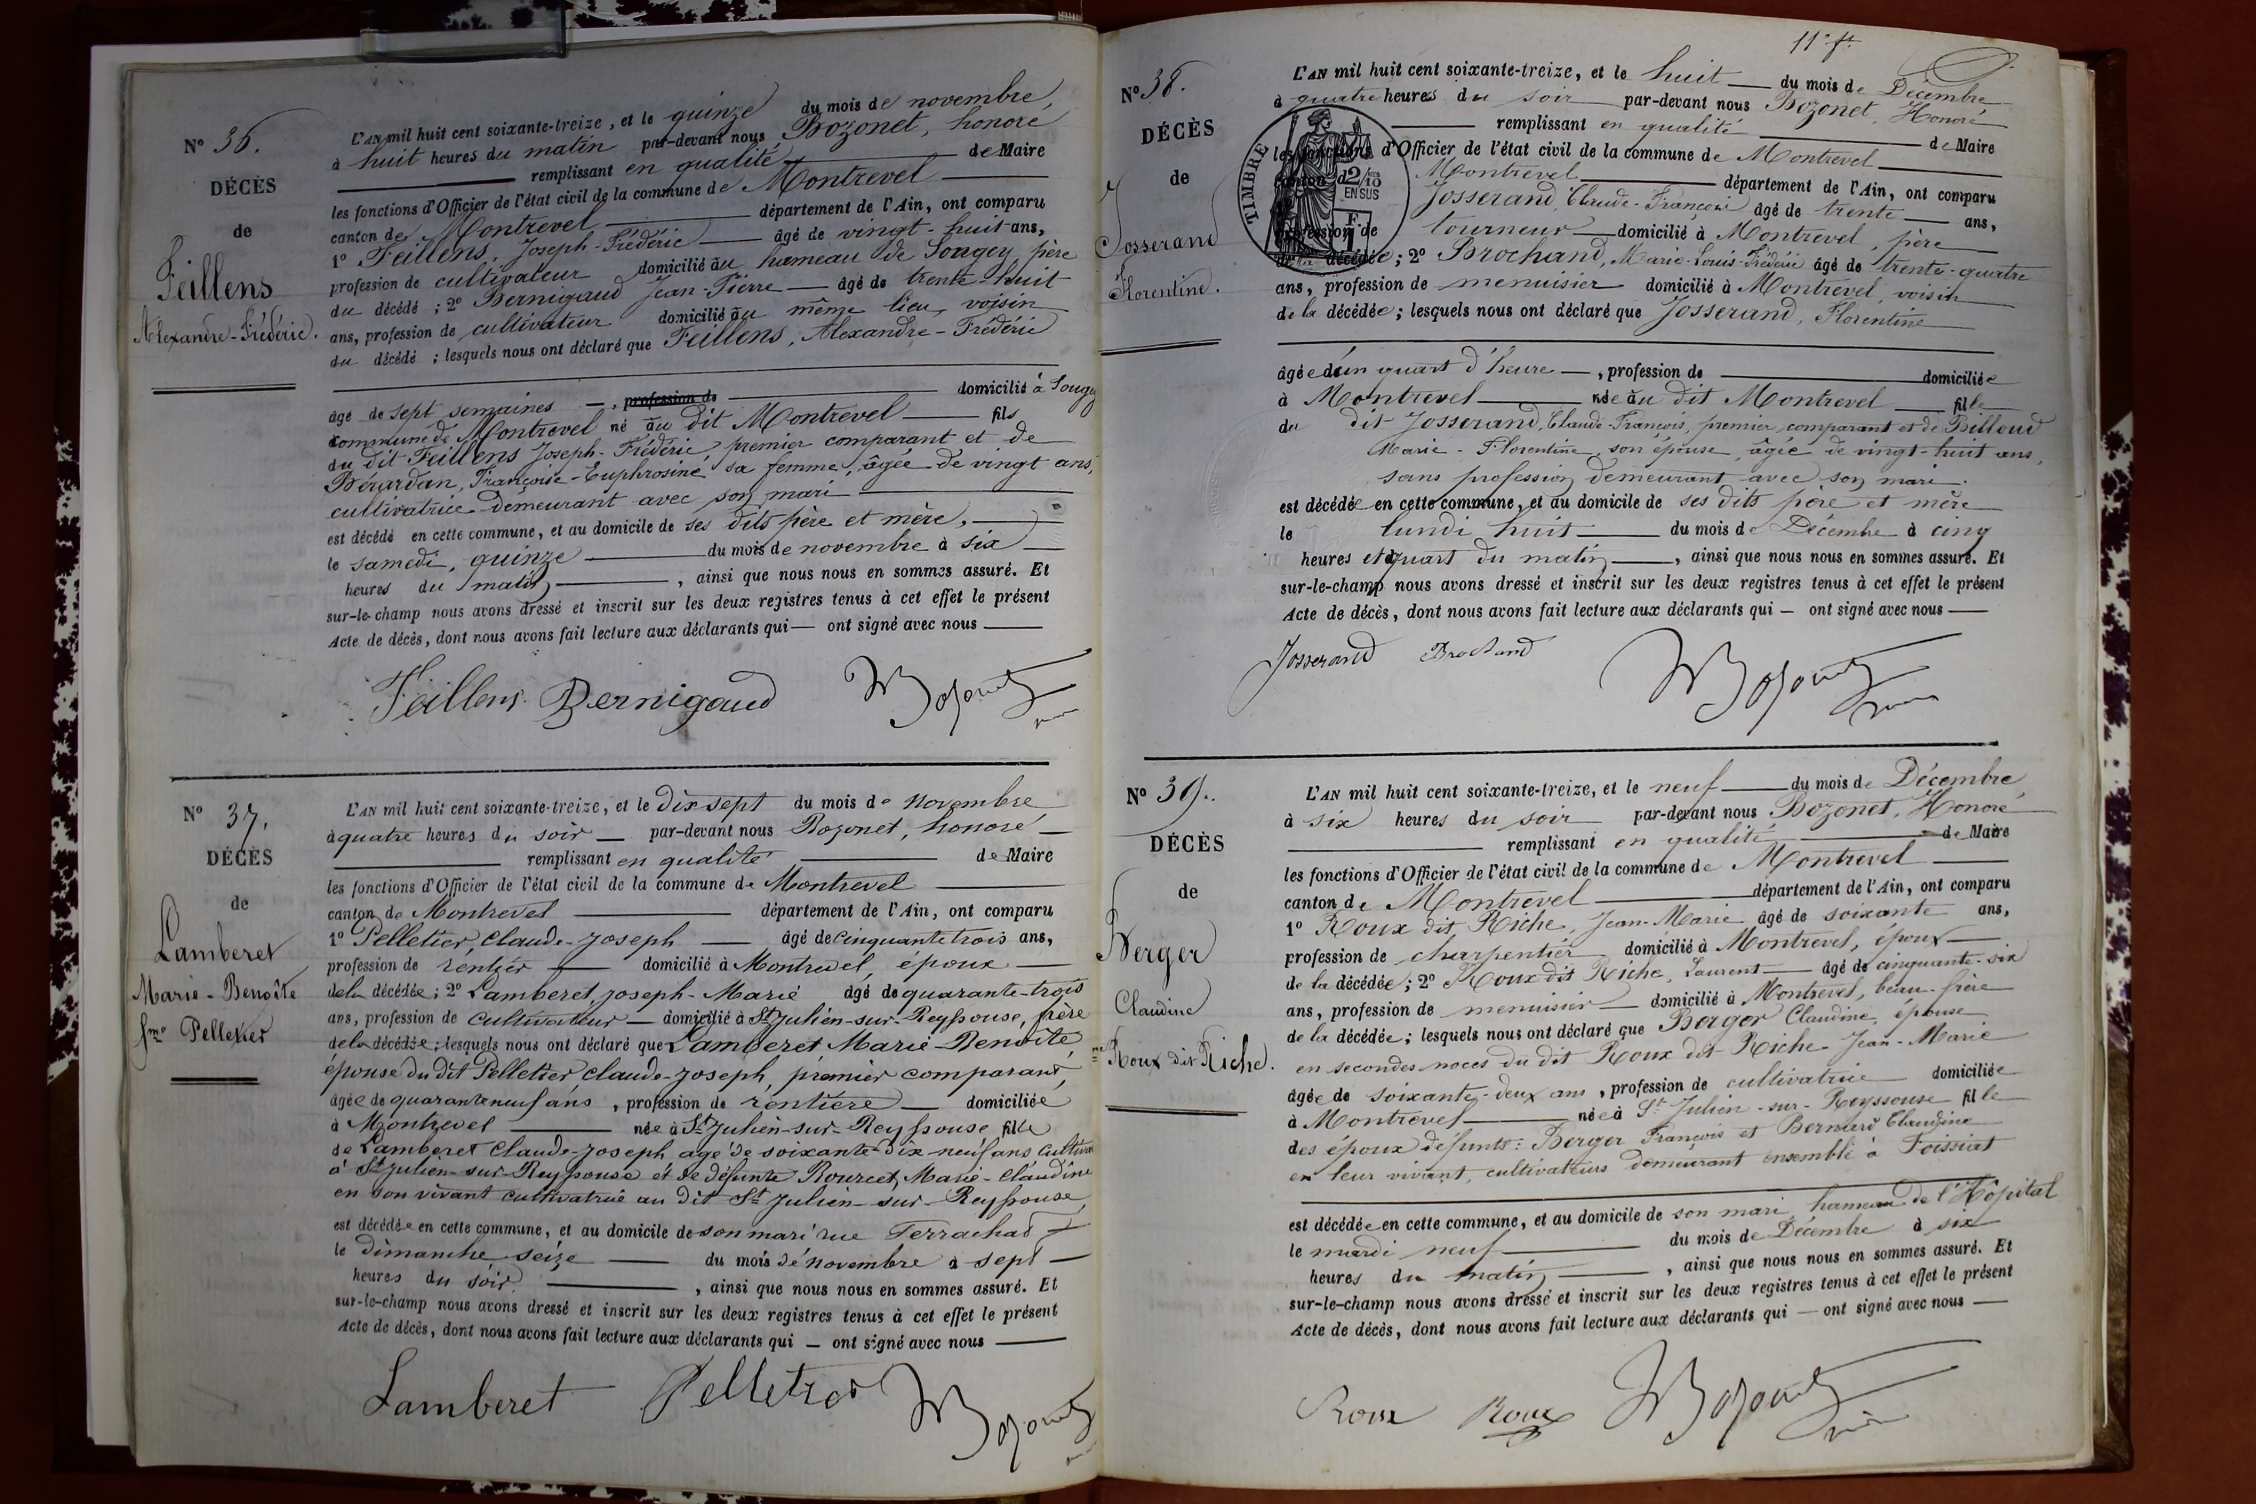 N° 36.
DÉCÈS
de
Feillens
Alexandre-Frédéric.
L'AN mil huit cent soixante-treize, et le quinze du mois de novembre,
à huit heures du matin par-devant nous Bozonet, honoré
remplissant en qualité de Maire
les fonctions d'Officier de l'état civil de la commune de Montrevel
canton de Montrevel département de l'Ain, ont comparu
1° Feillens, Joseph-Frédéric âgé de vingt-huit ans,
profession de cultivateur domicilié au hameau de Sougey, père
du décédé ; 2° Bernigaud Jean-Pierre âgé de trente-huit
ans, profession de cultivateur domicilié au même lieu, voisin
du décédé ; lesquels nous ont déclaré que Feillens, Alexandre-Frédéric
âgé de sept semaines, profession de domicilié à Sougey
commune de Montrevel né au dit Montrevel fils
du dit Feillens Joseph-Frédéric, premier comparant et de
Berardan, Françoise-Euphrosine sa femme, âgée de vingt ans,
cultivatrice demeurant avec son mari
est décédé en cette commune, et au domicile de ses dits père et mère,
le samedi, quinze du mois de novembre à six
heures du matin, ainsi que nous nous en sommes assuré. Et
sur-le-champ nous avons dressé et inscrit sur les deux registres tenus à cet effet le présent
Acte de décès, dont nous avons fait lecture aux déclarants qui — ont signé avec nous
Feillens Bernigaud Bozonet
N° 37.
DÉCÈS
de
Lamberet
Marie-Benoîte
fme Pelletier
L'AN mil huit cent soixante-treize, et le dix sept du mois de novembre
à quatre heures du soir par-devant nous Bozonet, honoré
remplissant en qualité de Maire
les fonctions d'Officier de l'état civil de la commune de Montrevel
canton de Montrevel département de l'Ain, ont comparu
1° Pelletier, Claude-Joseph âgé de cinquante trois ans,
profession de rentier domicilié à Montrevel, époux
de la décédée ; 2° Lamberet, joseph-Marie âgé de quarante-trois
ans, profession de cultivateur domicilié à St Julien-sur-Reyssouse, frère
de la décédée ; lesquels nous ont déclaré que Lamberet Marie-Benoîte,
épouse du dit Pelletier Claude-Joseph, premier comparant,
âgée de quarante neuf ans, profession de rentière domiciliée
à Montrevel née à St Julien-sur-Reyssouse fille
de Lamberet Claude-Joseph agé de soixante-dix neuf ans cultivat
à St julien-sur-Reyssouse et de défunte Rourcet, Marie-Claudine
en son vivant cultivatrice au dit St Julien-sur-Reyssouse,
est décédée en cette commune, et au domicile de son mari rue Ferrachat
le dimanche seize du mois de novembre à sept
heures du soir, ainsi que nous nous en sommes assuré. Et
sur-le-champ nous avons dressé et inscrit sur les deux registres tenus à cet effet le présent
Acte de décès, dont nous avons fait lecture aux déclarants qui — ont signé avec nous
Lamberet Pelletier Bozonet
11e ft
N° 38.
DÉCÈS
de
Josserand
Florentine.
TIMBRE
2/10
EN SUS
L'AN mil huit cent soixante-treize, et le huit du mois de Décembre
à quatre heures du soir par-devant nous Bozonet, Honoré
remplissant en qualité de Maire
les fonctions d'Officier de l'état civil de la commune de Montrevel
canton de Montrevel département de l'Ain, ont comparu
Josserand, Claude-François âgé de trente ans,
profession de tourneur domicilié à Montrevel, père
de la décédée ; 2° Brochand, Marie-Louis-Frédéric âgé de trente-quatre
ans, profession de menuisier domicilié à Montrevel, voisin
de la décédée ; lesquels nous ont déclaré que Josserand, Florentine
âgée d'un quart d'heure, profession de domiciliée
à Montrevel née au dit Montrevel fille
du dit Josserand, Claude-François, premier comparant et de Billoud
Marie-Florentine, son épouse, âgée de vingt-huit ans,
sans profession, demeurant avec son mari.
est décédée en cette commune, et au domicile de ses dits père et mère
le lundi huit du mois de Décembre à cinq
heures et quart du matin, ainsi que nous nous en sommes assuré. Et
sur-le-champ nous avons dressé et inscrit sur les deux registres tenus à cet effet le présent
Acte de décès, dont nous avons fait lecture aux déclarants qui — ont signé avec nous
Josserand Brochand Bozonet
N° 39.
DÉCÈS
de
Berger
Claudine
me Roux dit Riche.
L'AN mil huit cent soixante-treize, et le neuf du mois de Décembre,
à six heures du soir par-devant nous Bozonet, Honoré
remplissant en qualité de Maire
les fonctions d'Officier de l'état civil de la commune de Montrevel
canton de Montrevel département de l'Ain, ont comparu
1° Roux dit Riche, Jean-Marie âgé de soixante ans,
profession de charpentier domicilié à Montrevel, époux
de la décédée ; 2° Roux dit Riche, Laurent âgé de cinquante-six
ans, profession de menuisier domicilié à Montrevel, beau-frère
de la décédée ; lesquels nous ont déclaré que Berger Claudine, épouse
en secondes noces du dit Roux dit Riche Jean-Marie
âgée de soixante-deux ans, profession de cultivatrice domiciliée
à Montrevel née à St Julien-sur-Reyssouse fille
des époux défunts : Berger François et Bernard Claudine
en leur vivant, cultivateurs demeurant ensemble à Foissiat
est décédée en cette commune, et au domicile de son mari, hameau de l'Hôpital
le mardi neuf du mois de Décembre à six
heures du matin, ainsi que nous nous en sommes assuré. Et
sur-le-champ nous avons dressé et inscrit sur les deux registres tenus à cet effet le présent
Acte de décès, dont nous avons fait lecture aux déclarants qui — ont signé avec nous
Roux Roux Bozonet